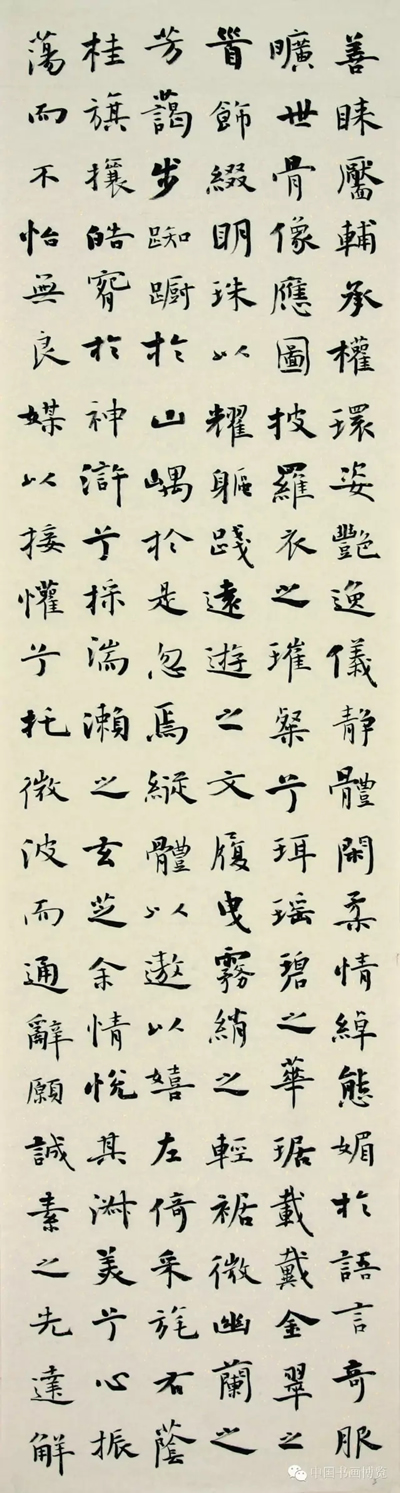 善睞靨輔承權環姿艷逸儀静體閑柔情綽態媚於語言奇服
曠世骨像應圖披羅衣之璀粲兮珥瑶碧之華琚載戴金翠之
首飾綴明珠以耀軀踐遠遊之文履曳霧綃之輕裾微幽蘭之
芳藹步踟蹰於山嵎於是忽焉縱體以遨以嬉左倚采旄右蔭
桂旗攘皓腕於神滸兮採湍瀨之玄芝余情悅其淑美兮心振
蕩而不怡無良媒以接懽兮托微波而通辭願誠素之先達解
中国书画博览